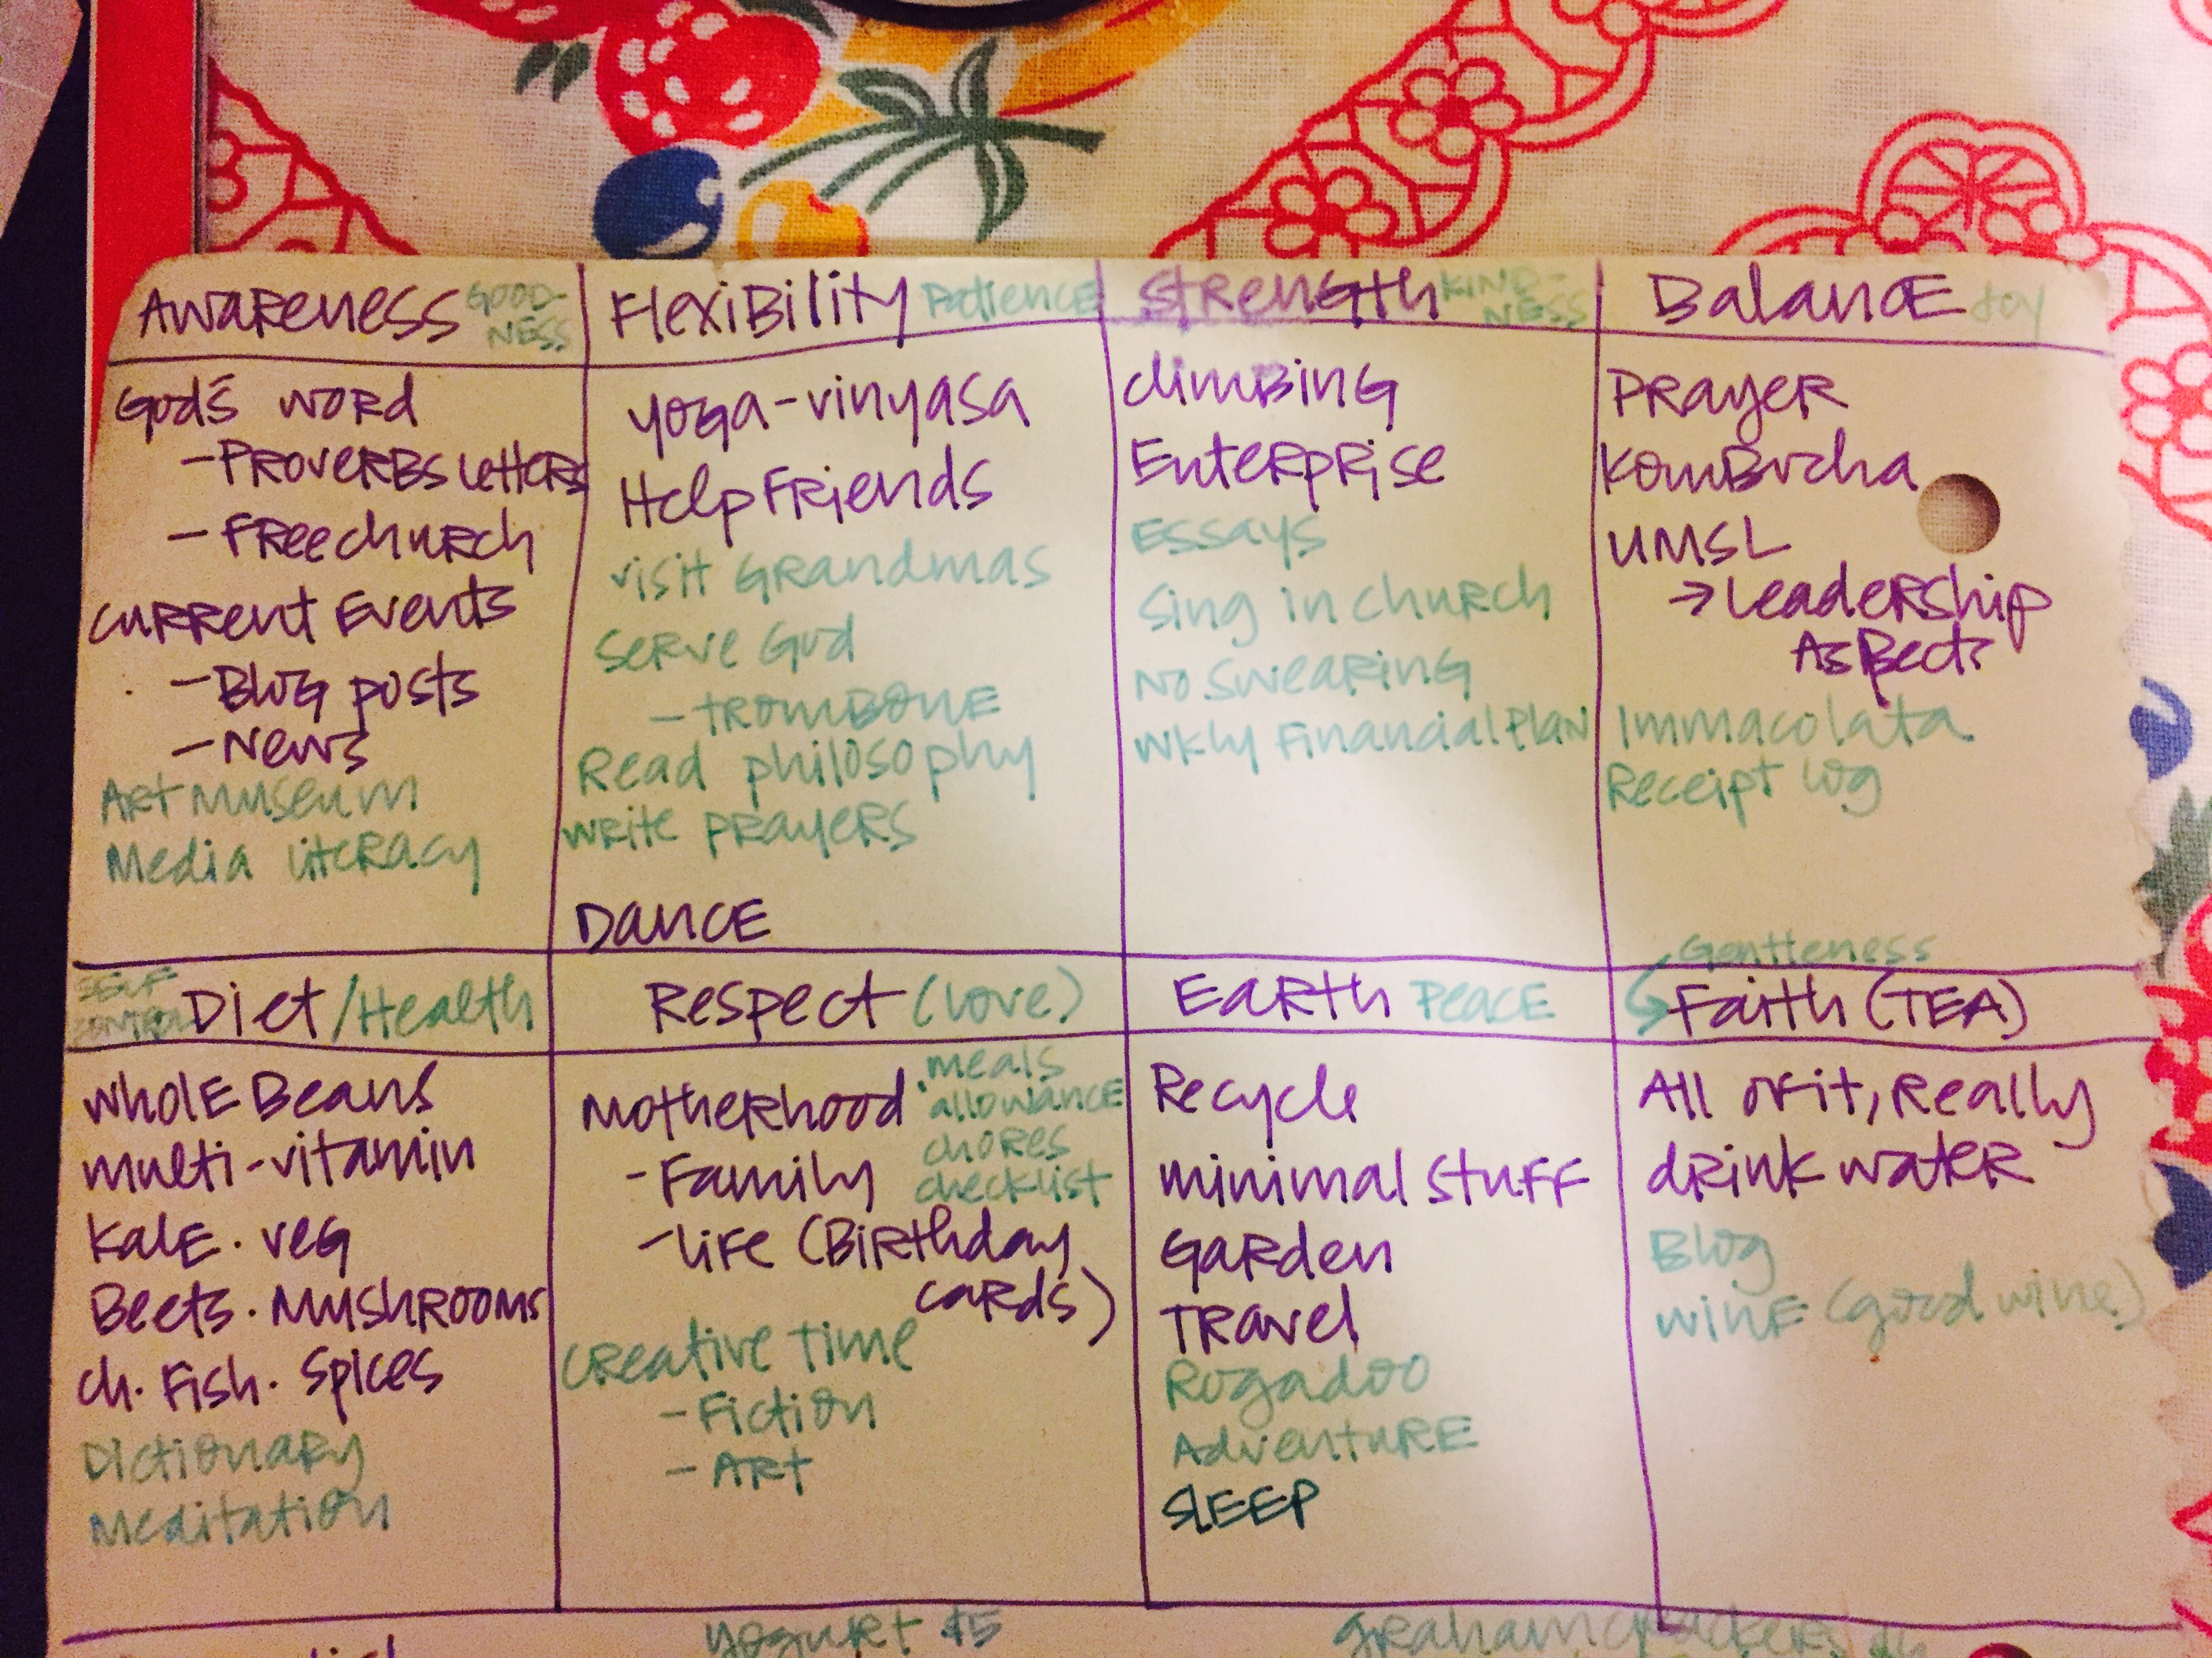 AWARENESS GOOD-
NESS
God's word
- Proverbs Letters
- Free church
current Events
- Blog posts
- News
Art museum
Media literacy
Flexibility Patience
yoga-vinyasa
Help Friends
visit Grandmas
Serve God
- TROMBONE
Read philosophy
write prayers
DANCE
Strength KIND-
NESS
climbing
Enterprise
Essays
Sing in church
No swearing
wkly Financial Plan
Balance Joy
Prayer
Kombucha
UMSL
→ Leadership
Aspects
Immacolata
Receipt log
SELF
CONTROL Diet/Health
whole Beans
multi-vitamin
Kale · veg
Beets · Mushrooms
ch. Fish. Spices
Dictionary
Meditation
Respect (love)
Motherhood · meals
allowance
chores
checklist
- Family
- life (Birthday
cards)
creative time
- Fiction
- Art
Earth PEACE
Recycle
minimal stuff
Garden
Travel
Rogadoo
Adventure
SLEEP
Gentleness
Faith (TEA)
All of it, Really
drink water
Blog
wine (good wine)
yogurt $5
graham crackers